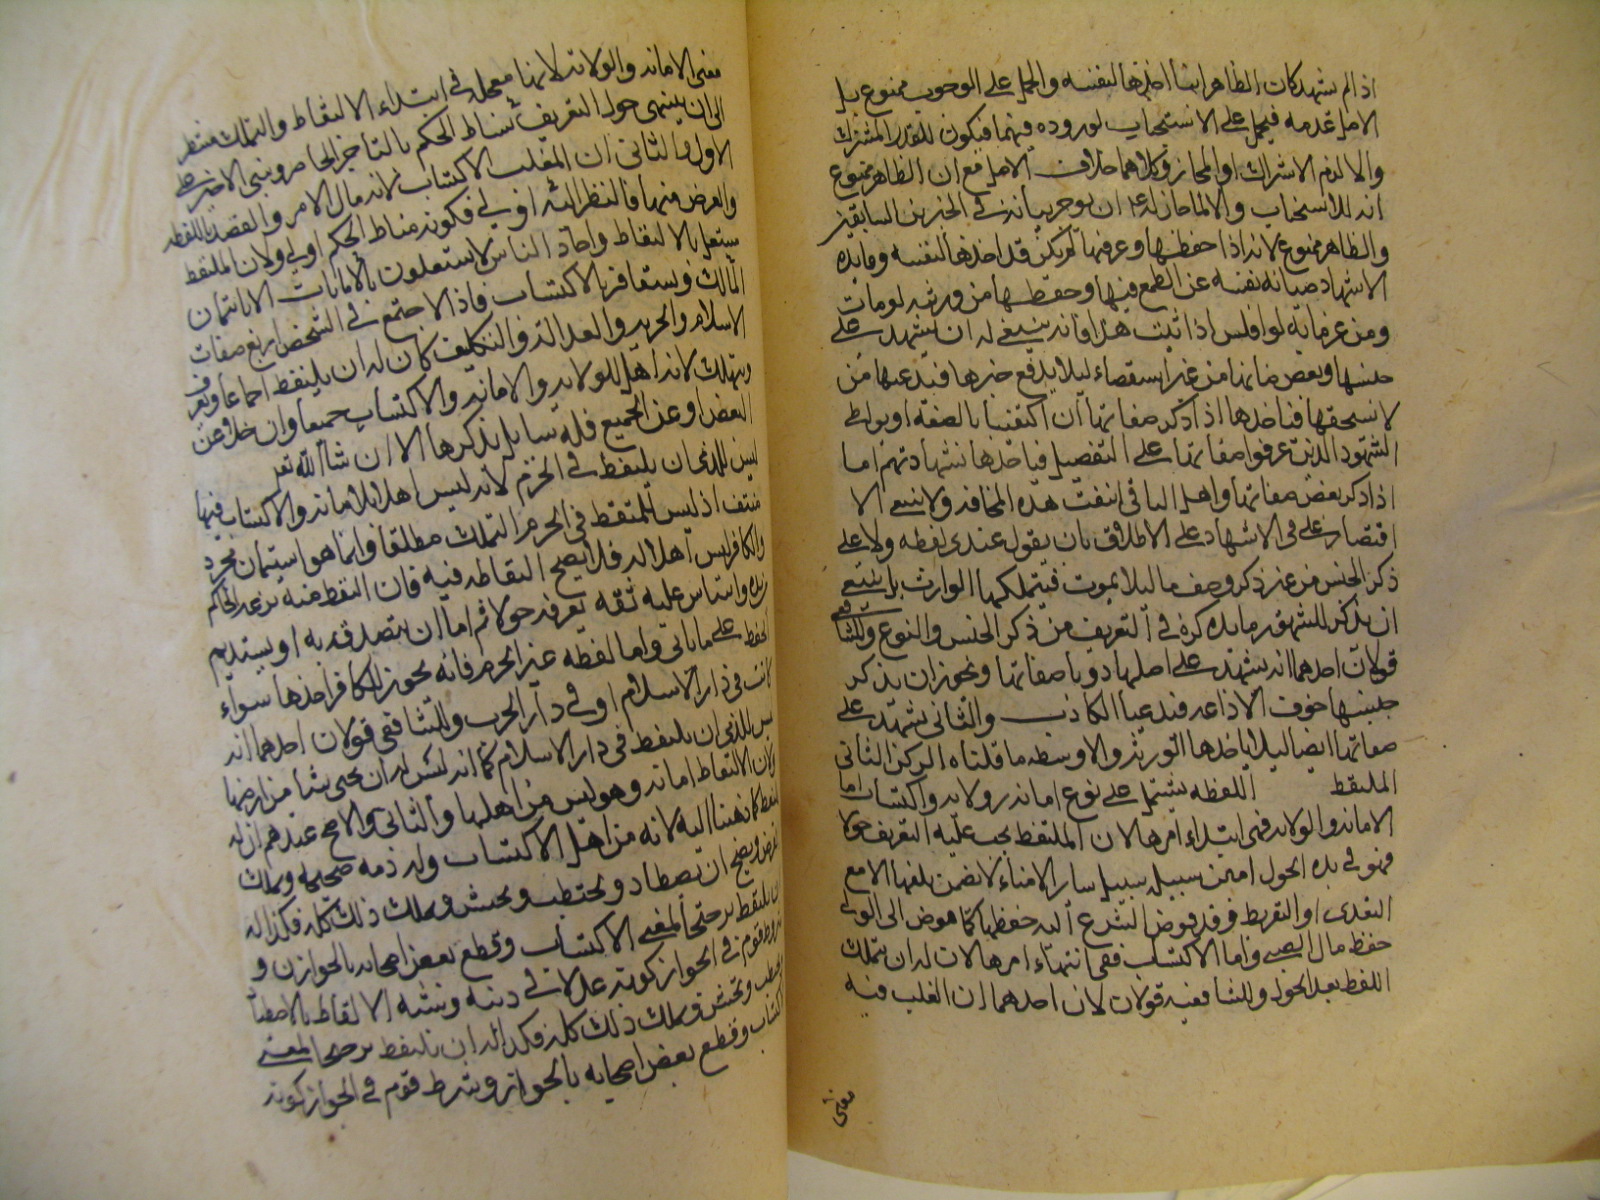 اذا لم يشهد كان الظاهر انه اخذها لنفسه والحمل على الوجوب ممنوع بل
الاصل عدمه فيحمل على الاستحباب لوروده فيهما فيكون للقدر المشترك
والا لزم الاشتراك او المجاز وكلاهما خلاف الاصل مع ان الظاهر ممنوع
انه للاستحباب والا لما جاز له ان يوخر بيانه في الخبرين السابقين
والظاهر ممنوع لانه اذا حفظها وعرفها لم يكن قد اخذها لنفسه وفايده
الاشهاد صيانه نفسه عن الطمع فيها وحفظها من ورثته لو مات
ومن غرمائه لو افلس اذا ثبت هذا فانه ينبغي له ان يشهد على
جنسها وبعض صفاتها من غير استقصاء ليلا يذيع خبرها فيدعيها من
لا يستحقها فياخذها اذا ذكر صفاتها ان اكتفينا بالصفه او يواطي
الشهود الذين عرفوا صفاتها على التفصيل فياخذها بشهادتهم اما
اذا ذكر بعض صفاتها واهمل الباقي انتفت هذه المخافه ولا ينبغي الا
اقتصار على في الاشهاد على الاطلاق بان يقول عندي لقطه ولا على
ذكر الجنس من غير ذكر وصف ما ليلا يموت فيتملكها الوارث بل ينبغي
ان يذكر للشهود ما يذكره في التعريف من ذكر الجنس والنوع وللشافعي
قولان احدهما انه يشهد على اصلها دون صفاتها ويجوز ان يذكر
جنسها خوف الاذاعه فيدعيها الكاذب والثاني يشهد على
صفاتها ايضا ليلا ياخذها الورثه والاوسط ما قلناه الركن الثاني
الملتقط اللقطه يشتمل على نوع امانه وولايه واكتساب اما
الامانه والولايه ففي ابتداء امرها لان الملتقط يجب عليه التعريف حولا
فهو في مده الحول امين سبيله سبيل ساير الامناء لا يضمن تلفها الا مع
التعدي او التفريط وقد فوض الشرع اليه حفظها كما فوض الى الولي
حفظ مال الصبي واما الاكتساب ففي انتهاء امرها لان له ان يتملك
اللقطه بعد الحول وللشافعيه قولان لان احدهما ان الغلب فيه
معنى
معنى الامانه والولايه لانها معجله في ابتداء الالتقاط والتملك منتظر
الى ان ينتهي حول التعريف فيناط الحكم بالناجز الحاضر ويبني الاخر على
الاول والثاني ان المغلب الاكتساب لانه مال الامر والقصد باللقطه
والغرض منها فالنظر اليه اولى فكونه مناط الحكم اولى ولان الملتقط
يستقل بالالتقاط واحاد الناس لا يستقلون بالامانات الا بايتمان
المالك ويستقلون بالاكتساب فاذا اجتمع في الشخص اربع صفات
الاسلام والحريه والعداله والتكليف كان له ان يلتقط اجماعا ويعرف
ويتملك لانه اهل للولايه والامانه والاكتساب جميعا وان خلا عن
البعض او عن الجميع فله مسايل نذكرها الان ان شا الله تع
ليس للذمي ان يلتقط في الحرم لانه ليس اهلا للامانه والاكتساب فيها
منتف اذ ليس للملتقط في الحرم التملك مطلقا وانما هو استيمان مجرد
والكافر ليس اهلا له فلا يصح التقاطه فيه فان التقط منه نزعه الحاكم
من يده واستامن عليه ثقه يعرفه حولا ثم اما ان يتصدق به او يستديم
الحفظ على ما ياتي واما لقطه غير الحرم فانه يجوز للكافر اخذها سواء
كانت في دار الاسلام او في دار الحرب وللشافعي قولان احدهما انه
ليس للذمي ان يلتقط في دار الاسلام كما انه ليس له ان يحيي شيا من ارضها
ولان الالتقاط امانه وهو ليس من اهلها والثاني والاصح عندهم ان له
ان يلتقط كما ذهبنا اليه لانه من اهل الاكتساب وله ذمه صحيحه ويملك
القرض ويصح ان يصطاد ويحتطب ويحتش ويملك ذلك كله فكذا له
ان يلتقط ترجيحا لمعنى الاكتساب وقطع بعض اصحابه بالجواز ن و
شرط قوم في الجواز كونه عدلا في دينه وشبه الالتقاط بالاصطيا
يحتطب ويحتش ويملك ذلك كله فكذا له ان يلتقط ترجيحا لمعنى
اكتساب وقطع بعض اصحابه بالجواز وشرط قوم في الجواز كونه